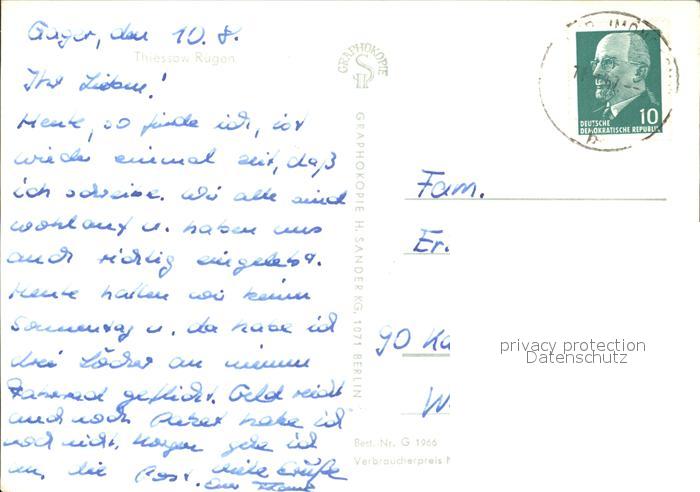 Gager, den 10.8.
Thiessow Rügen
Ihr Lieben!
Heute, so finde ich, ist
wieder einmal Zeit, daß
ich schreibe. Wir alle sind
wohlauf u. haben uns
auch richtig eingelebt.
Heute hatten wir keinen
Sonnentag u. da habe ich
drei Löcher an meinem
Fahrrad geflickt. Geld reicht
auch noch. Paket habe ich
noch nicht. Morgen gehe ich
an die Post. Viele Grüße
Euer
GRAPHOKOPIE
GRAPHOKOPIE H. SANDER KG, 1071 BERLIN
DEUTSCHE 10
DEMOKRATISCHE REPUBLIK
Fam.
Er.
90 Ka
W
privacy protection
Datenschutz
Best. Nr. G 1966
Verbraucherpreis